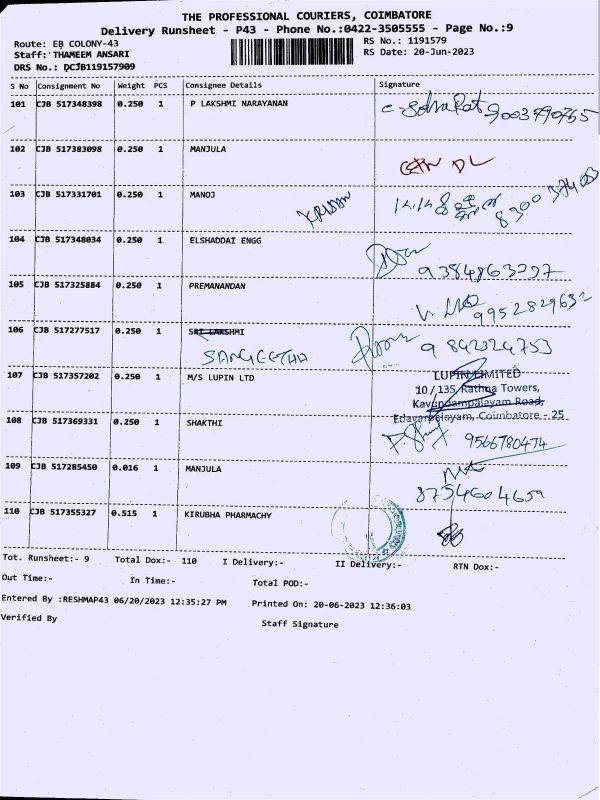 THE PROFESSIONAL COURIERS, COIMBATORE
Delivery Runsheet - P43 - Phone No.:0422-3505555 - Page No.:9
Route: EB COLONY-43 RS No.: 1191579
Staff: THAMEEM ANSARI RS Date: 20-Jun-2023
DRS No.: DCJB119157909
S No Consignment No Weight PCS Consignee Details Signature
101 CJB 517348398 0.250 1 P LAKSHMI NARAYANAN
102 CJB 517383098 0.250 1 MANJULA
103 CJB 517331701 0.250 1 MANOJ
104 CJB 517348034 0.250 1 ELSHADDAI ENGG
105 CJB 517325884 0.250 1 PREMANANDAN
9952829632
106 CJB 517277517 0.250 1 SRI LAKSHMI
SANGEETHA 9842324753
107 CJB 517357202 0.250 1 M/S LUPIN LTD LUPIN LIMITED
10 / 135, Rathna Towers,
Kavundampalayam Road,
Edayarpalayam, Coimbatore - 25
108 CJB 517369331 0.250 1 SHAKTHI
9566780474
109 CJB 517285450 0.016 1 MANJULA
8754604659
110 CJB 517355327 0.515 1 KIRUBHA PHARMACHY
Tot. Runsheet:- 9 Total Dox:- 110 I Delivery:- II Delivery:- RTN Dox:-
Out Time:- In Time:- Total POD:-
Entered By :RESHMAP43 06/20/2023 12:35:27 PM Printed On: 20-06-2023 12:36:03
Verified By Staff Signature